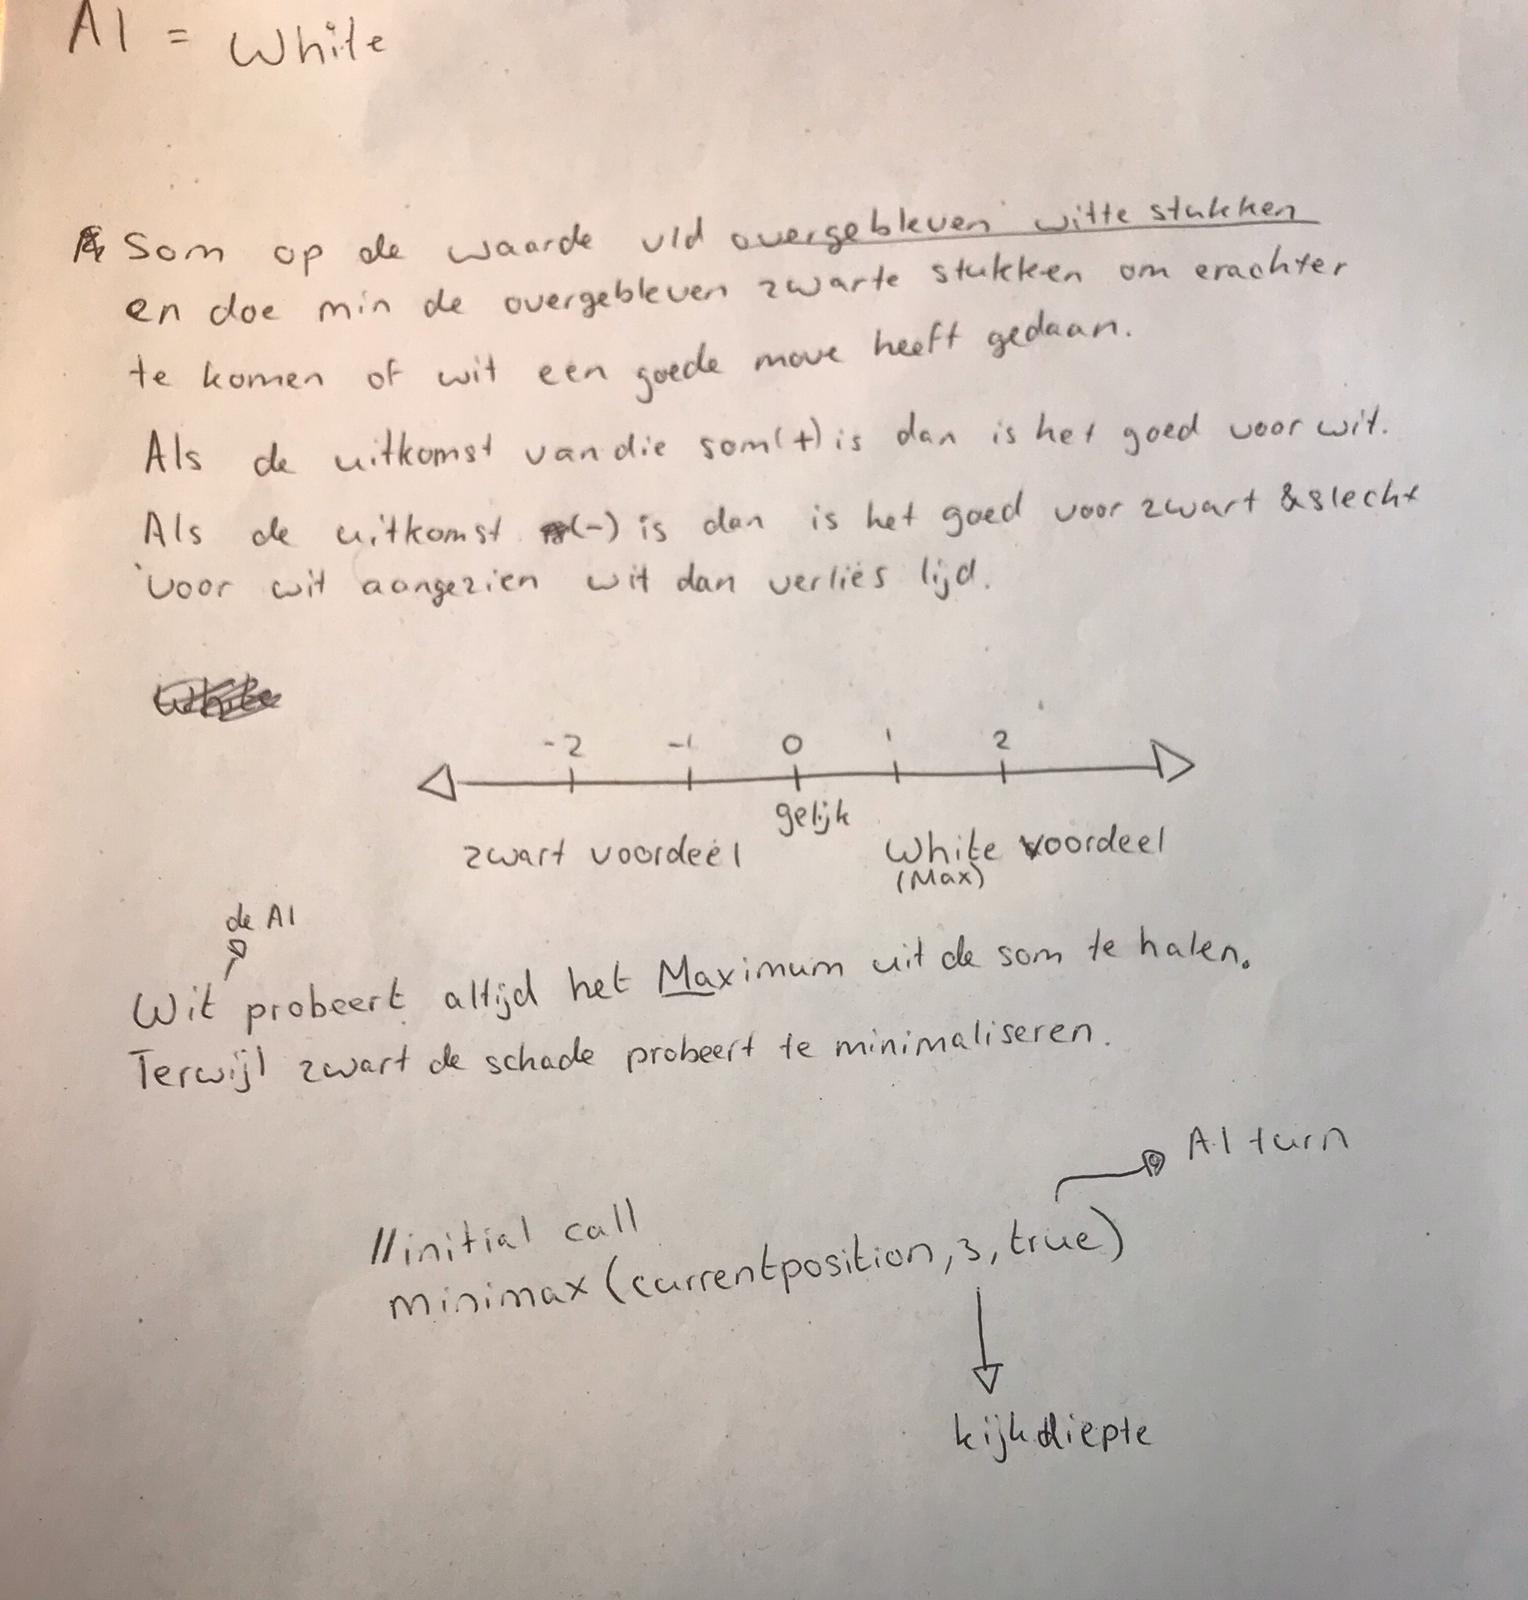 AI = White
Som op de waarde v/d overgebleven witte stukken
en doe min de overgebleven zwarte stukken om erachter
te komen of wit een goede move heeft gedaan.
Als de uitkomst van die som(+) is dan is het goed voor wit.
Als de uitkomst (-) is dan is het goed voor zwart & slecht
voor wit aangezien wit dan verlies lijd.
-2 -1 0 1 2
gelijk
zwart voordeel White voordeel
(Max)
de AI
Wit probeert altijd het Maximum uit de som te halen.
Terwijl zwart de schade probeert te minimaliseren.
AI turn
//initial call
minimax(currentposition,3,true)
kijkdiepte